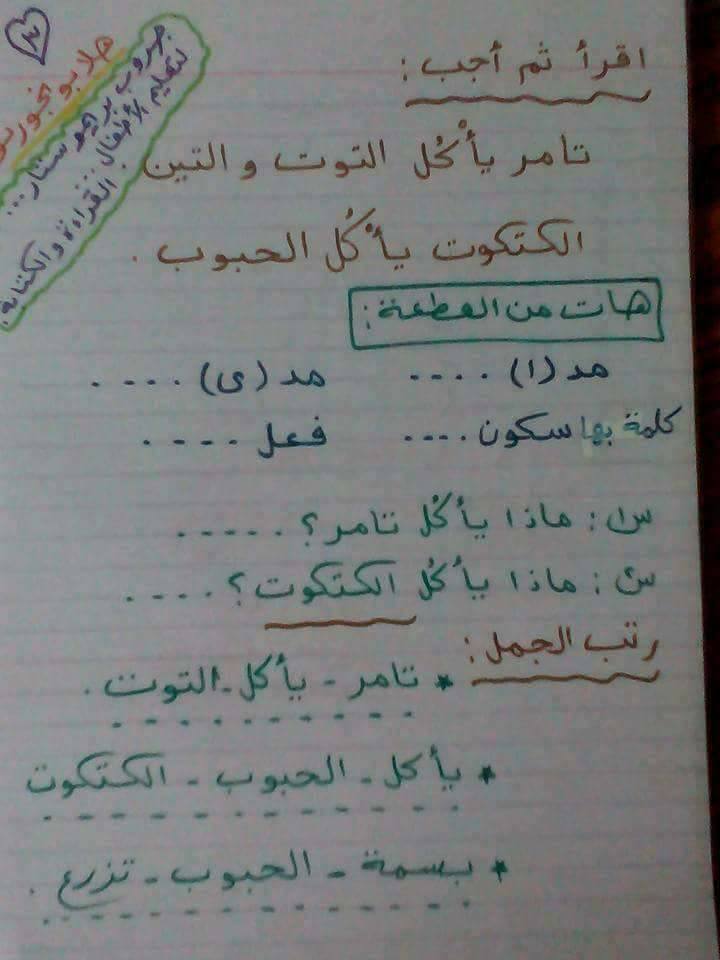 اقرأ ثم أجب :
تامر يأْكُل التوت والتين .
الكتكوت يأْكُل الحبوب .
هات من القطعة :
مد (ا) .... مد (ى) ....
كلمة بها سكون .... فعل ....
س١ : ماذا يأكُل تامر ؟ .....
س٢ : ماذا يأكُل الكتكوت ؟ ....
رتب الجمل :
* تامر - يأكل - التوت .
* يأكل - الحبوب - الكتكوت
* بسمة - الحبوب - تزرع .
هلا بو بخور
جروب بريمو ستار ...
لتعليم الأطفال .. القراءة والكتابة .